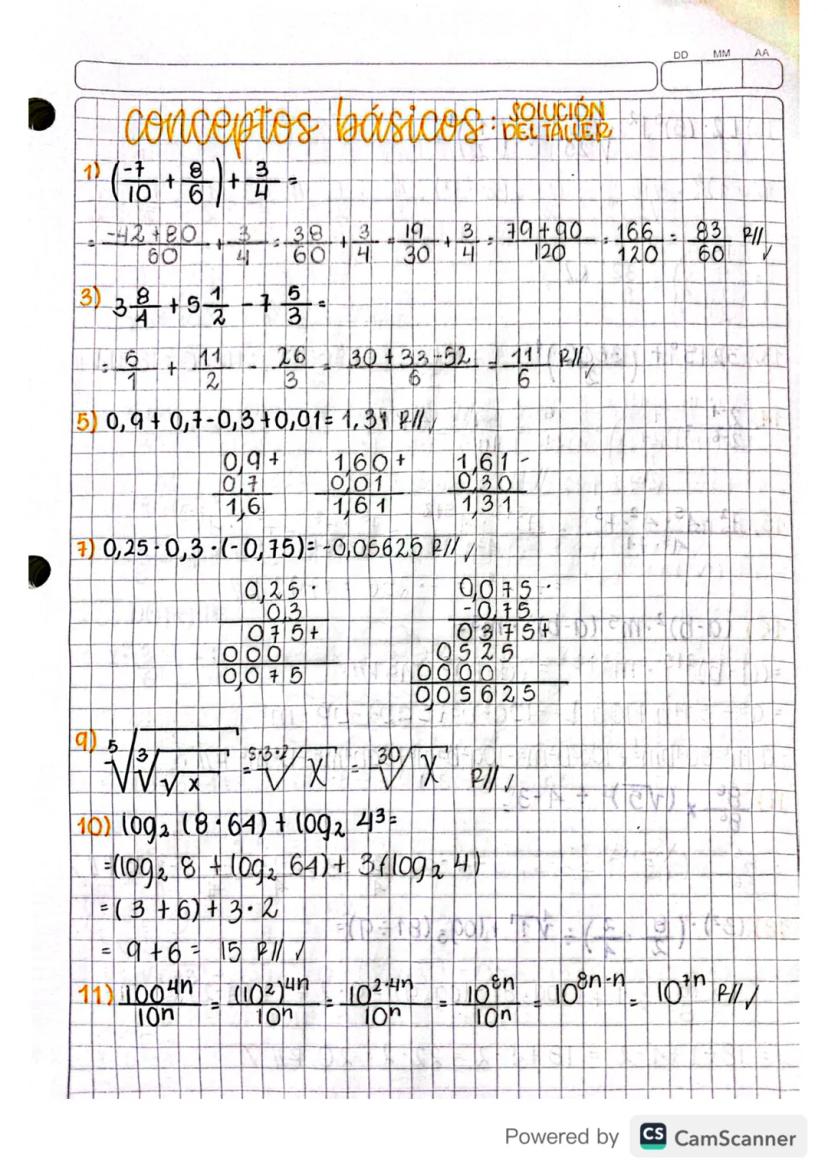 DD MM AA
conceptos básicos: SOLUCIÓN DEL TALLER
1) (-7/10 + 8/6) + 3/4 =
= -42+80/60 + 3/4 = 38/60 + 3/4 = 19/30 + 3/4 = 79+90/120 = 166/120 = 83/60 R// ✓
3) 3 8/4 + 5 1/2 - 7 5/3 =
= 5/1 + 11/2 - 26/3 = 30+33-52/6 = 11/6 R// ✓
5) 0,9 + 0,7 - 0,3 + 0,01 = 1,31 R// ✓
0,9 + 1,60 + 1,61 -
0,7 0,01 0,30
1,6 1,61 1,31
7) 0,25 · 0,3 · (-0,75) = -0,05625 R// ✓
0,25 · 0,075 ·
0,3 -0,75
075+ 0375+
000 0525
0,075 0000
0,05625
9) ⁵√³√√x = ⁵·³·²√x = ³⁰√x R// ✓
10) log₂ (8 · 64) + log₂ 4³ =
= (log₂ 8 + log₂ 64) + 3(log₂ 4)
= (3 + 6) + 3 · 2
= 9 + 6 = 15 R// ✓
11) 100⁴ⁿ/10ⁿ = (10²)⁴ⁿ/10ⁿ = 10²·⁴ⁿ/10ⁿ = 10⁸ⁿ/10ⁿ = 10⁸ⁿ⁻ⁿ = 10⁷ⁿ R// ✓
Powered by CS CamScanner